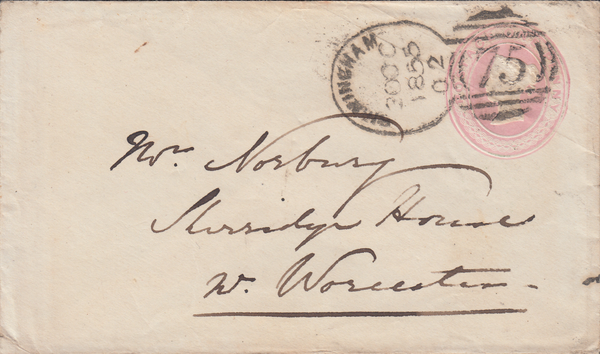 BIRMINGHAM
20 OC
1855
75
Mrs Norbury
Sherridge House
Nr. Worcester